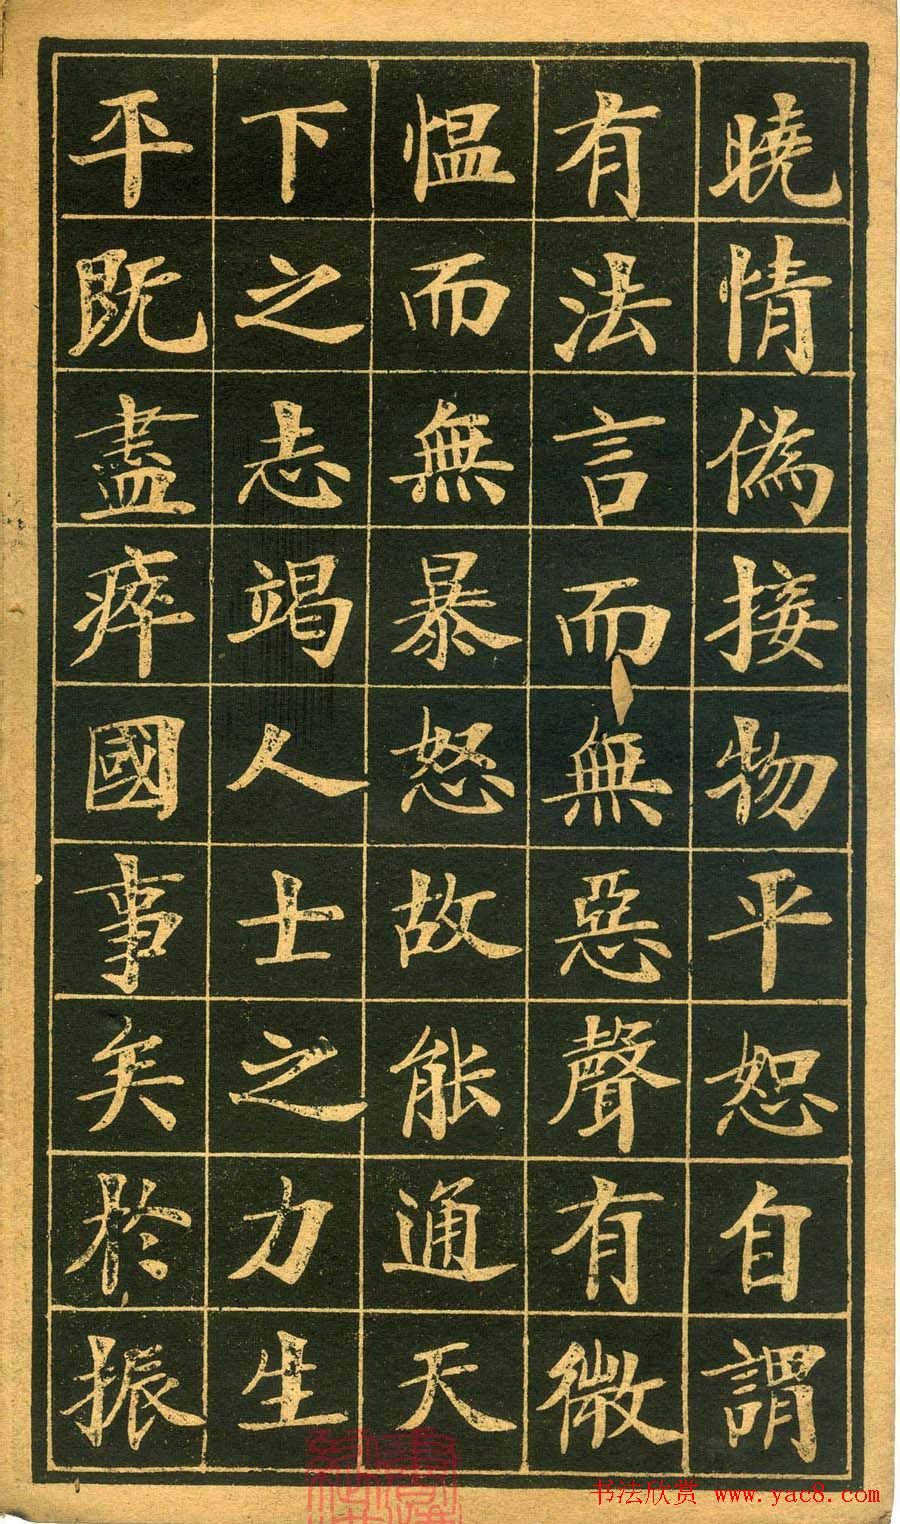 曉情偽接物平恕自謂
有法言而無惡聲有微
愠而無暴怒故能通天
下之志竭人士之力生
平既盡瘁國事矣於振
书法欣赏 www.yac8.com